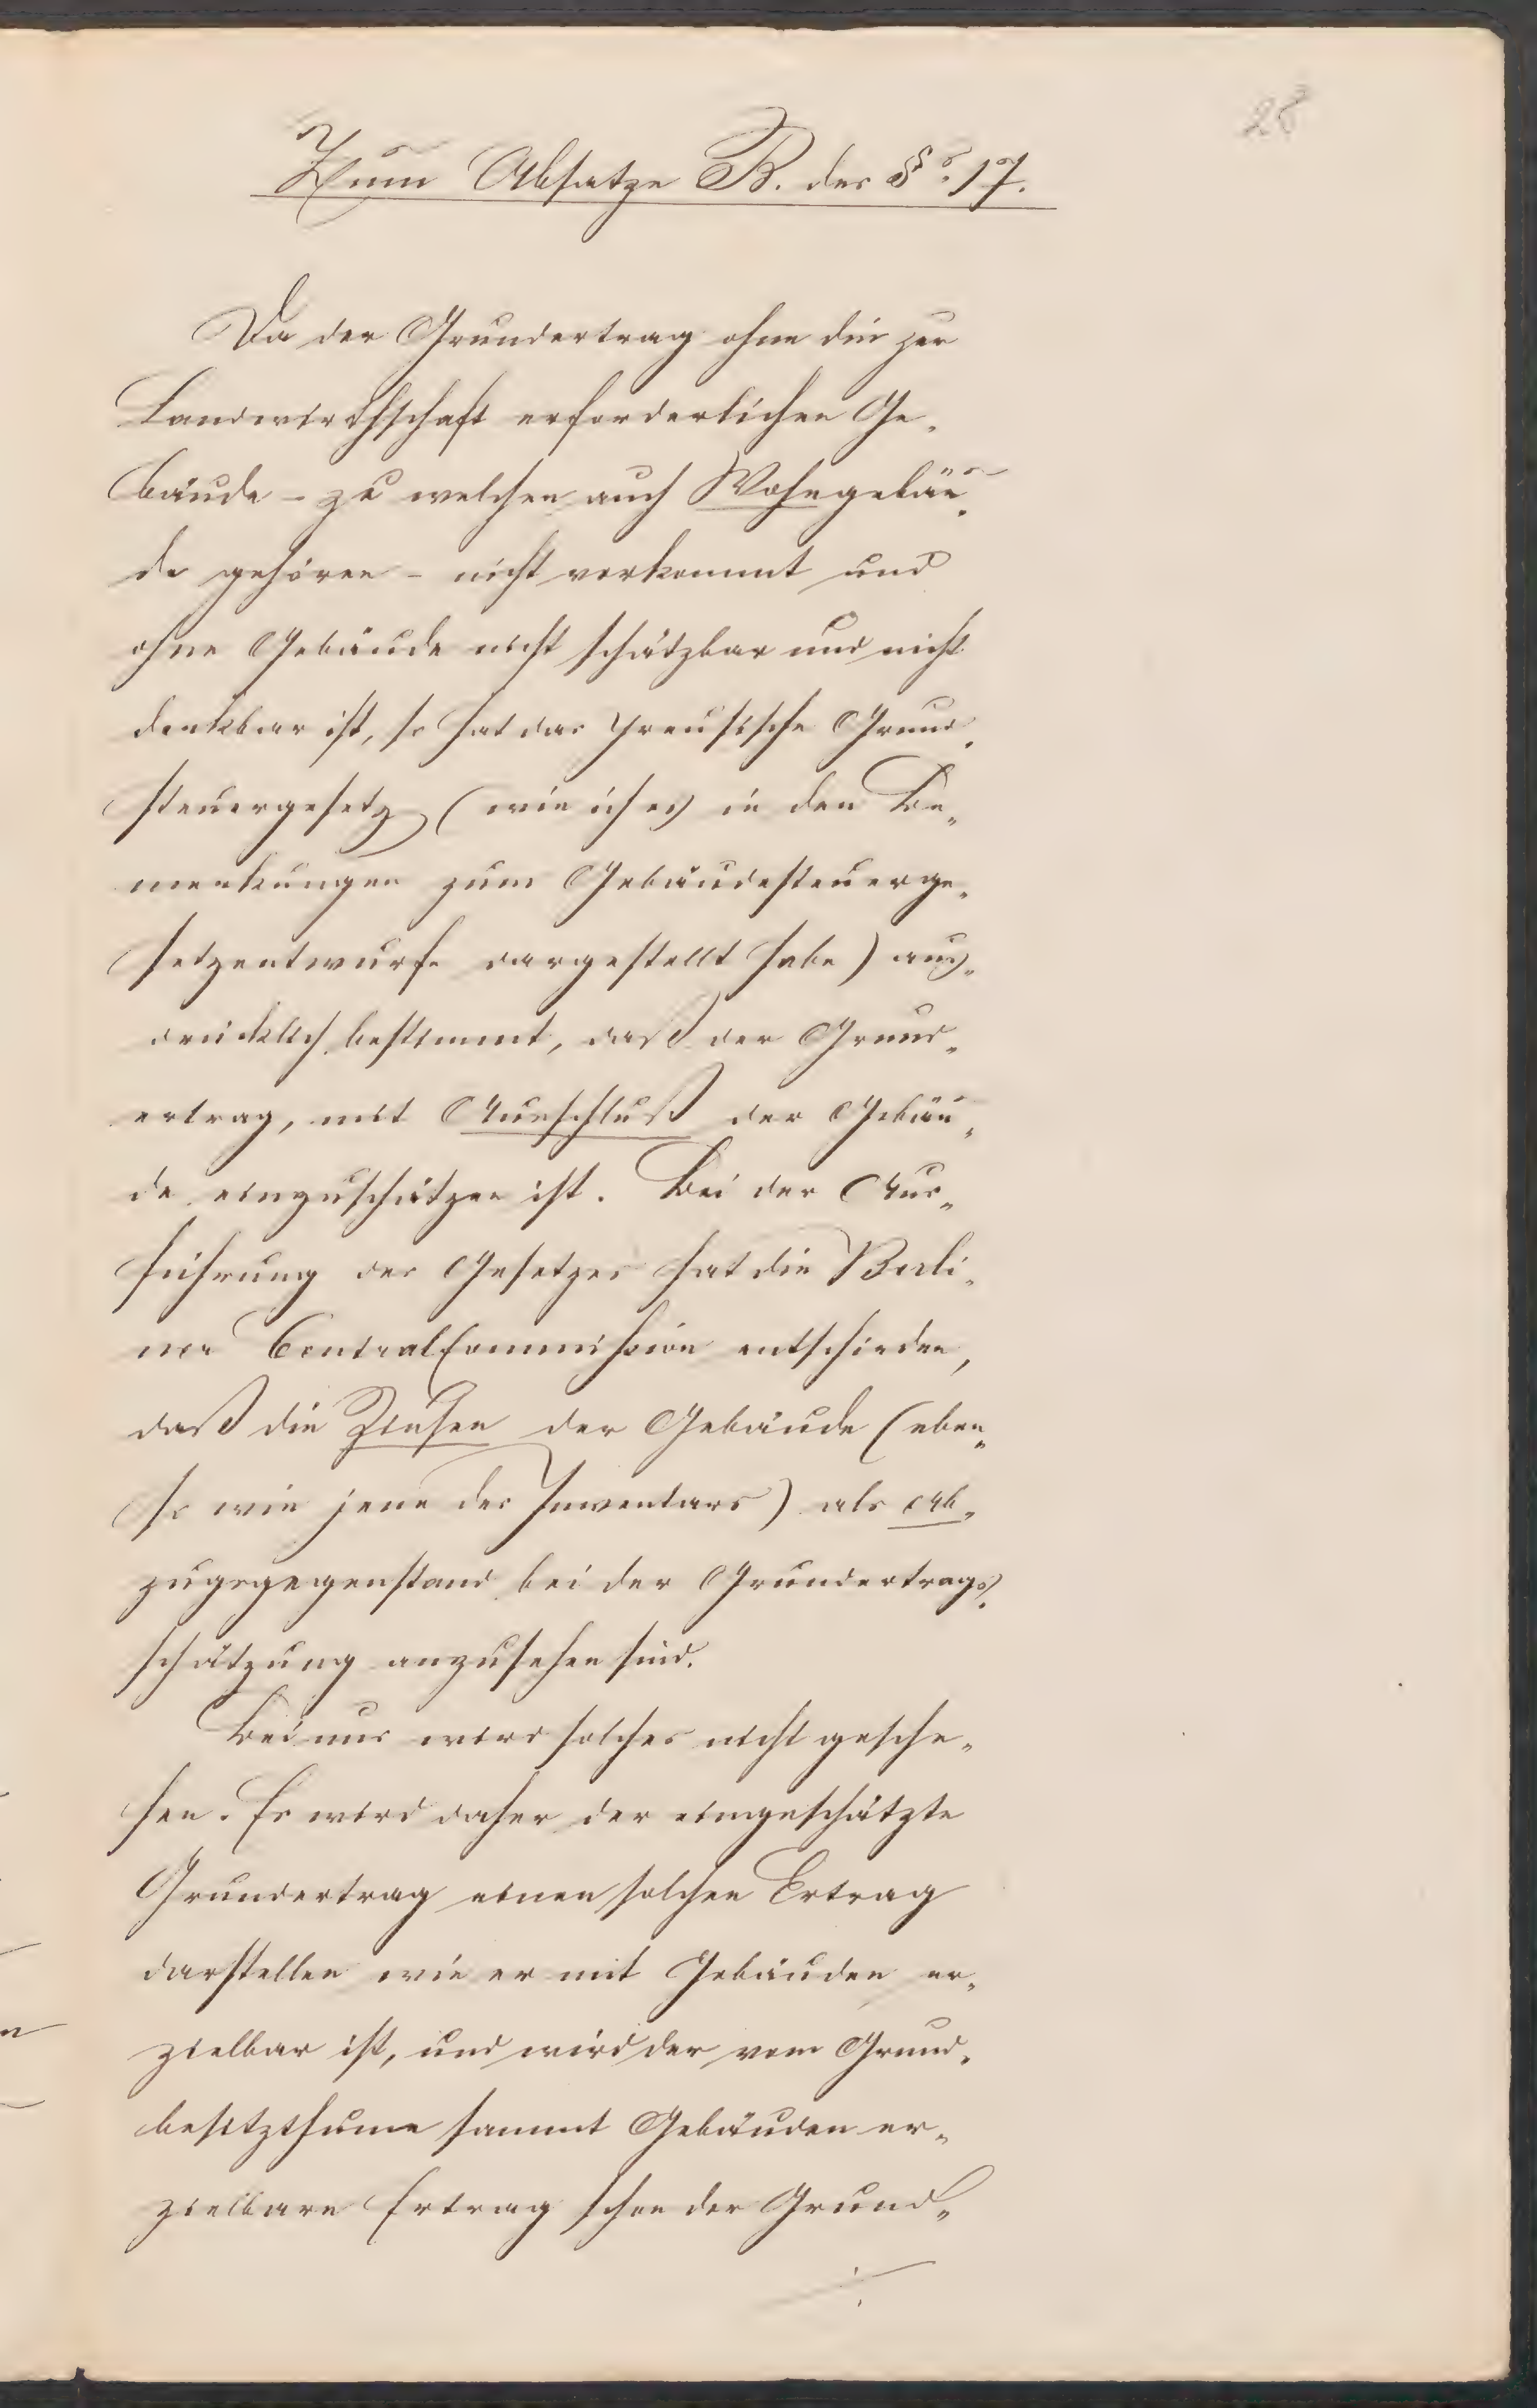 28
Zum Absatze B. des §s. 17.
Da der Grundertrag ohne die zur
Landwirthschaft erforderlichen Ge-
bäude – zu welchen auch Wohngebäu-
de gehören – nicht vorkommt und
ohne Gebäude nicht schätzbar und nicht
denkbar ist, so hat das Preusische Grund-
steuergesetz (wie ich es in den Be-
merkungen zum Gebäudesteuerge-
setzentwurfe dargestellt habe) aus-
drücklich bestimmt, daß der Grund-
ertrag, mit Ausschluß der Gebäu-
de einzuschätzen ist. Bei der Aus-
führung des Gesetzes hat die Berli-
ner CentralCommission entschieden,
daß die Zinsen der Gebäude (eben-
so wie jene des Inventars) als Ab-
zugsgegenstand bei der Grundertrags-
schätzung anzusehen sind.
Bei uns wird solches nicht gesche-
hen. Es wird daher der eingeschätzte
Grundertrag einen solchen Ertrag
darstellen wie er mit Gebäuden er-
zielbar ist, und wird der vom Grund-
besitzthume sammt Gebäuden er-
zielbare Ertrag schon der Grund-
./.